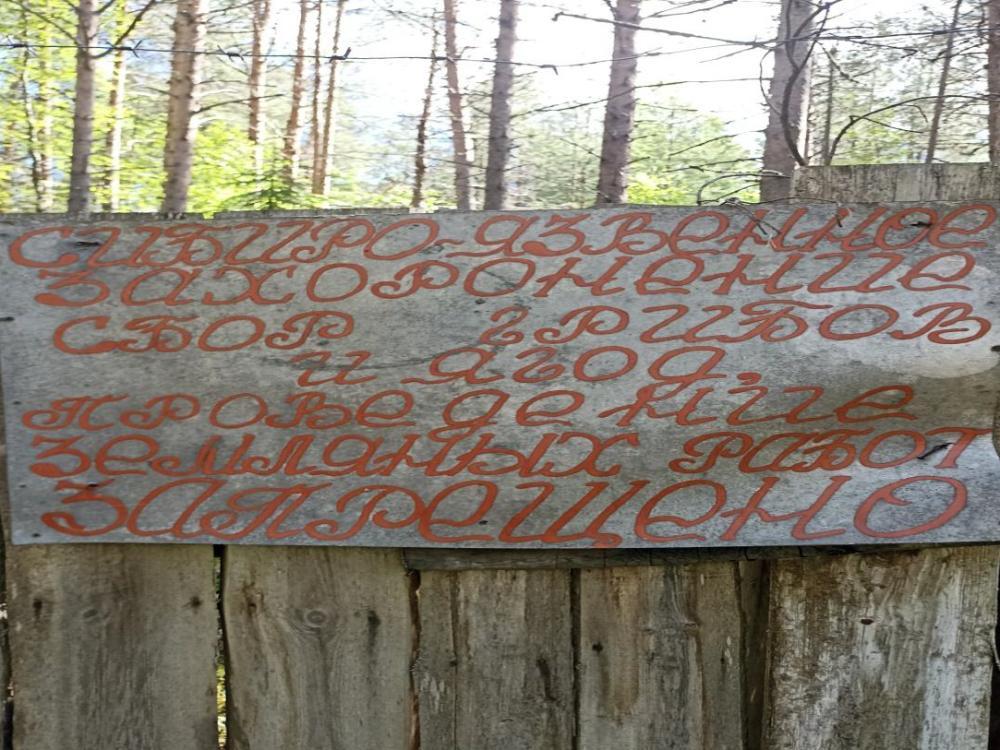 СИБИРО-ЯЗВЕННОЕ
ЗАХОРОНЕНИЕ
СБОР ГРИБОВ
И ЯГОД,
ПРОВЕДЕНИЕ
ЗЕМЛЯНЫХ РАБОТ
ЗАПРЕЩЕНО